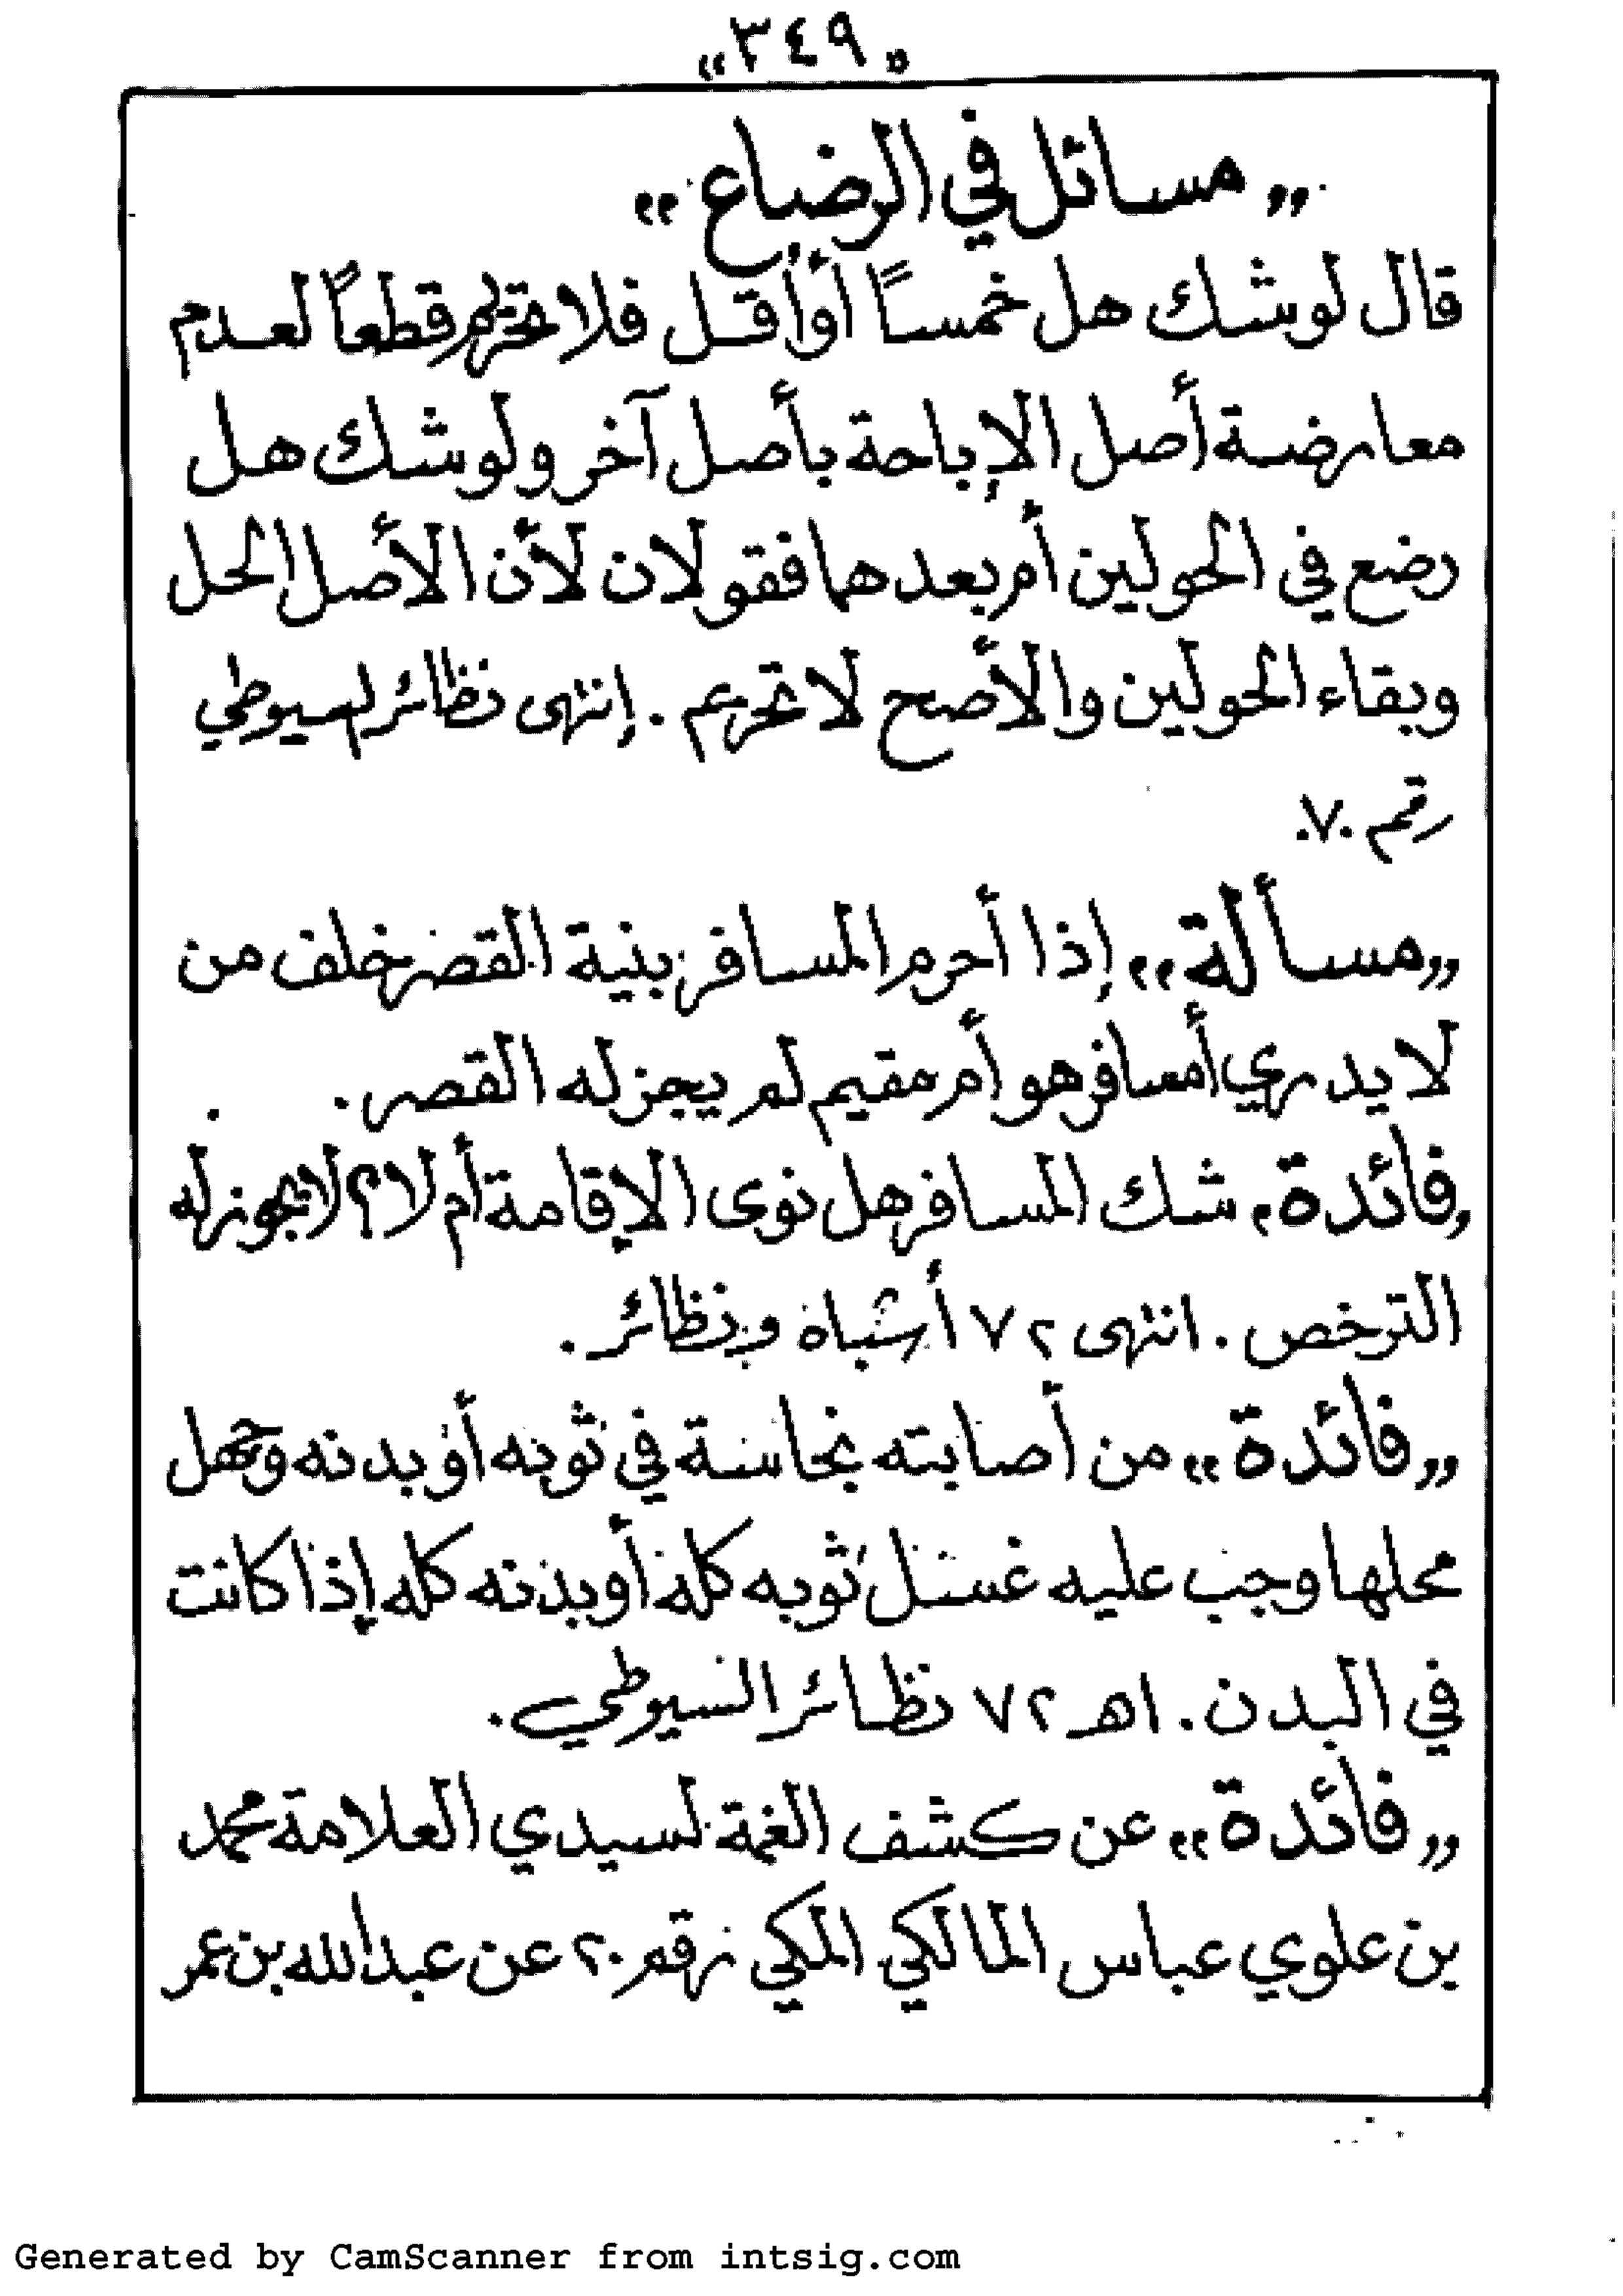 «٣٤٩»
«مسائل في الرضاع»
قال لو شك هل خمساً أو أقل فلا تحريم قطعاً لعدم
معارضة أصل الإباحة بأصل آخر ولو شك هل
رضع في الحولين أم بعدهما فقولان لأن الأصل الحل
وبقاء الحولين والأصح لا تحريم . إنتهى نظائر لسيوطي
رقم ٧٠.
«مسألة» إذا أحرم المسافر بنية القصر خلف من
لا يدري أمسافر هو أم مقيم لم يجز له القصر .
«فائدة» شك المسافر هل نوى الإقامة أم لا؟ لا يجوز له
الترخص . انتهى ٧٢ أشباه ونظائر .
«فائدة» من أصابته نجاسة في ثوبه أو بدنه وجهل
محلها وجب عليه غسل ثوبه كله أو بدنه كله إذا كانت
في البدن . اهـ ٧٢ نظائر السيوطي .
«فائدة» عن كشف الغمة لسيدي العلامة محمد
بن علوي عباس المالكي المكي رقم ٢٠ عن عبدالله بن عمر
Generated by CamScanner from intsig.com